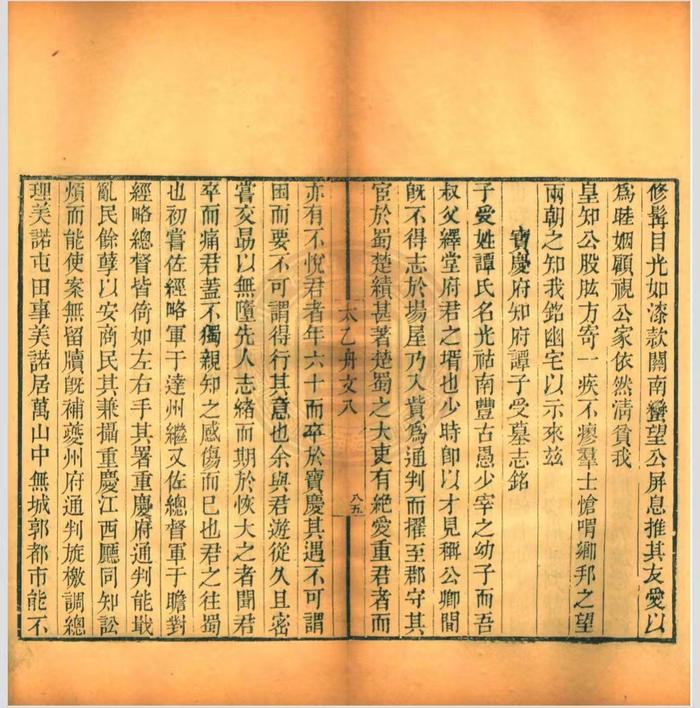 修髯目光如漆款關南蠻望公屏息推其友愛以
為睦婣顧視公家依然清貧我
皇知公股肱方寄一疾不瘳羣士愴喟鄉邦之望
兩朝之知我銘幽宅以示來茲
寶慶府知府譚子受墓志銘
子受姓譚氏名光祜南豐古愚少宰之幼子而吾
叔父繹堂府君之壻也少時卽以才見稱公卿間
旣不得志於場屋乃入貲為通判而擢至郡守其
宦於蜀楚績甚著楚蜀之大吏有絶愛重君者而
太乙舟文八
八五
亦有不悅君者年六十而卒於寶慶其遇不可謂
困而要不可謂得行其意也余與君遊從久且密
嘗交勗以無墮先人志緒而期於恢大之者聞君
卒而痛君蓋不獨親知之感傷而已也君之往蜀
也初嘗佐經略軍于達州繼又佐總督軍于瞻對
經略總督皆倚如左右手其署重慶府通判能戢
亂民餘孽以安商民其兼攝重慶江西廳同知訟
煩而能使案無留牘旣補夔州府通判旋檄調總
理美諾屯田事美諾居萬山中無城郭都市能不